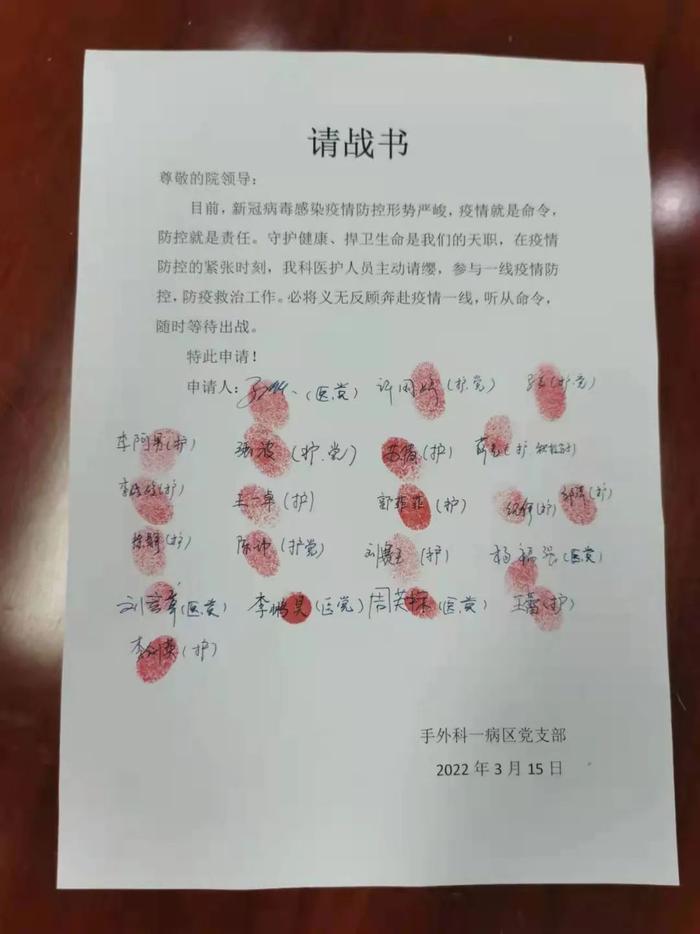 请战书
尊敬的院领导：
目前，新冠病毒感染疫情防控形势严峻，疫情就是命令，
防控就是责任。守护健康、捍卫生命是我们的天职，在疫情
防控的紧张时刻，我科医护人员主动请缨，参与一线疫情防
控，防疫救治工作。必将义无反顾奔赴疫情一线，听从命令，
随时等待出战。
特此申请！
申请人： （医党） （护.党） （护党）
李阿男（护） 张波（护.党） （护） （护
（护） 王一卓（护） 郭菲菲（护） （护） （护）
（护） 陈坤（护党） （护） 杨福强（医党
（医党） 李鹏昊（医党） 周英林（医.党） 王蕾（护）
（护）
手外科一病区党支部
2022 年 3 月 15 日